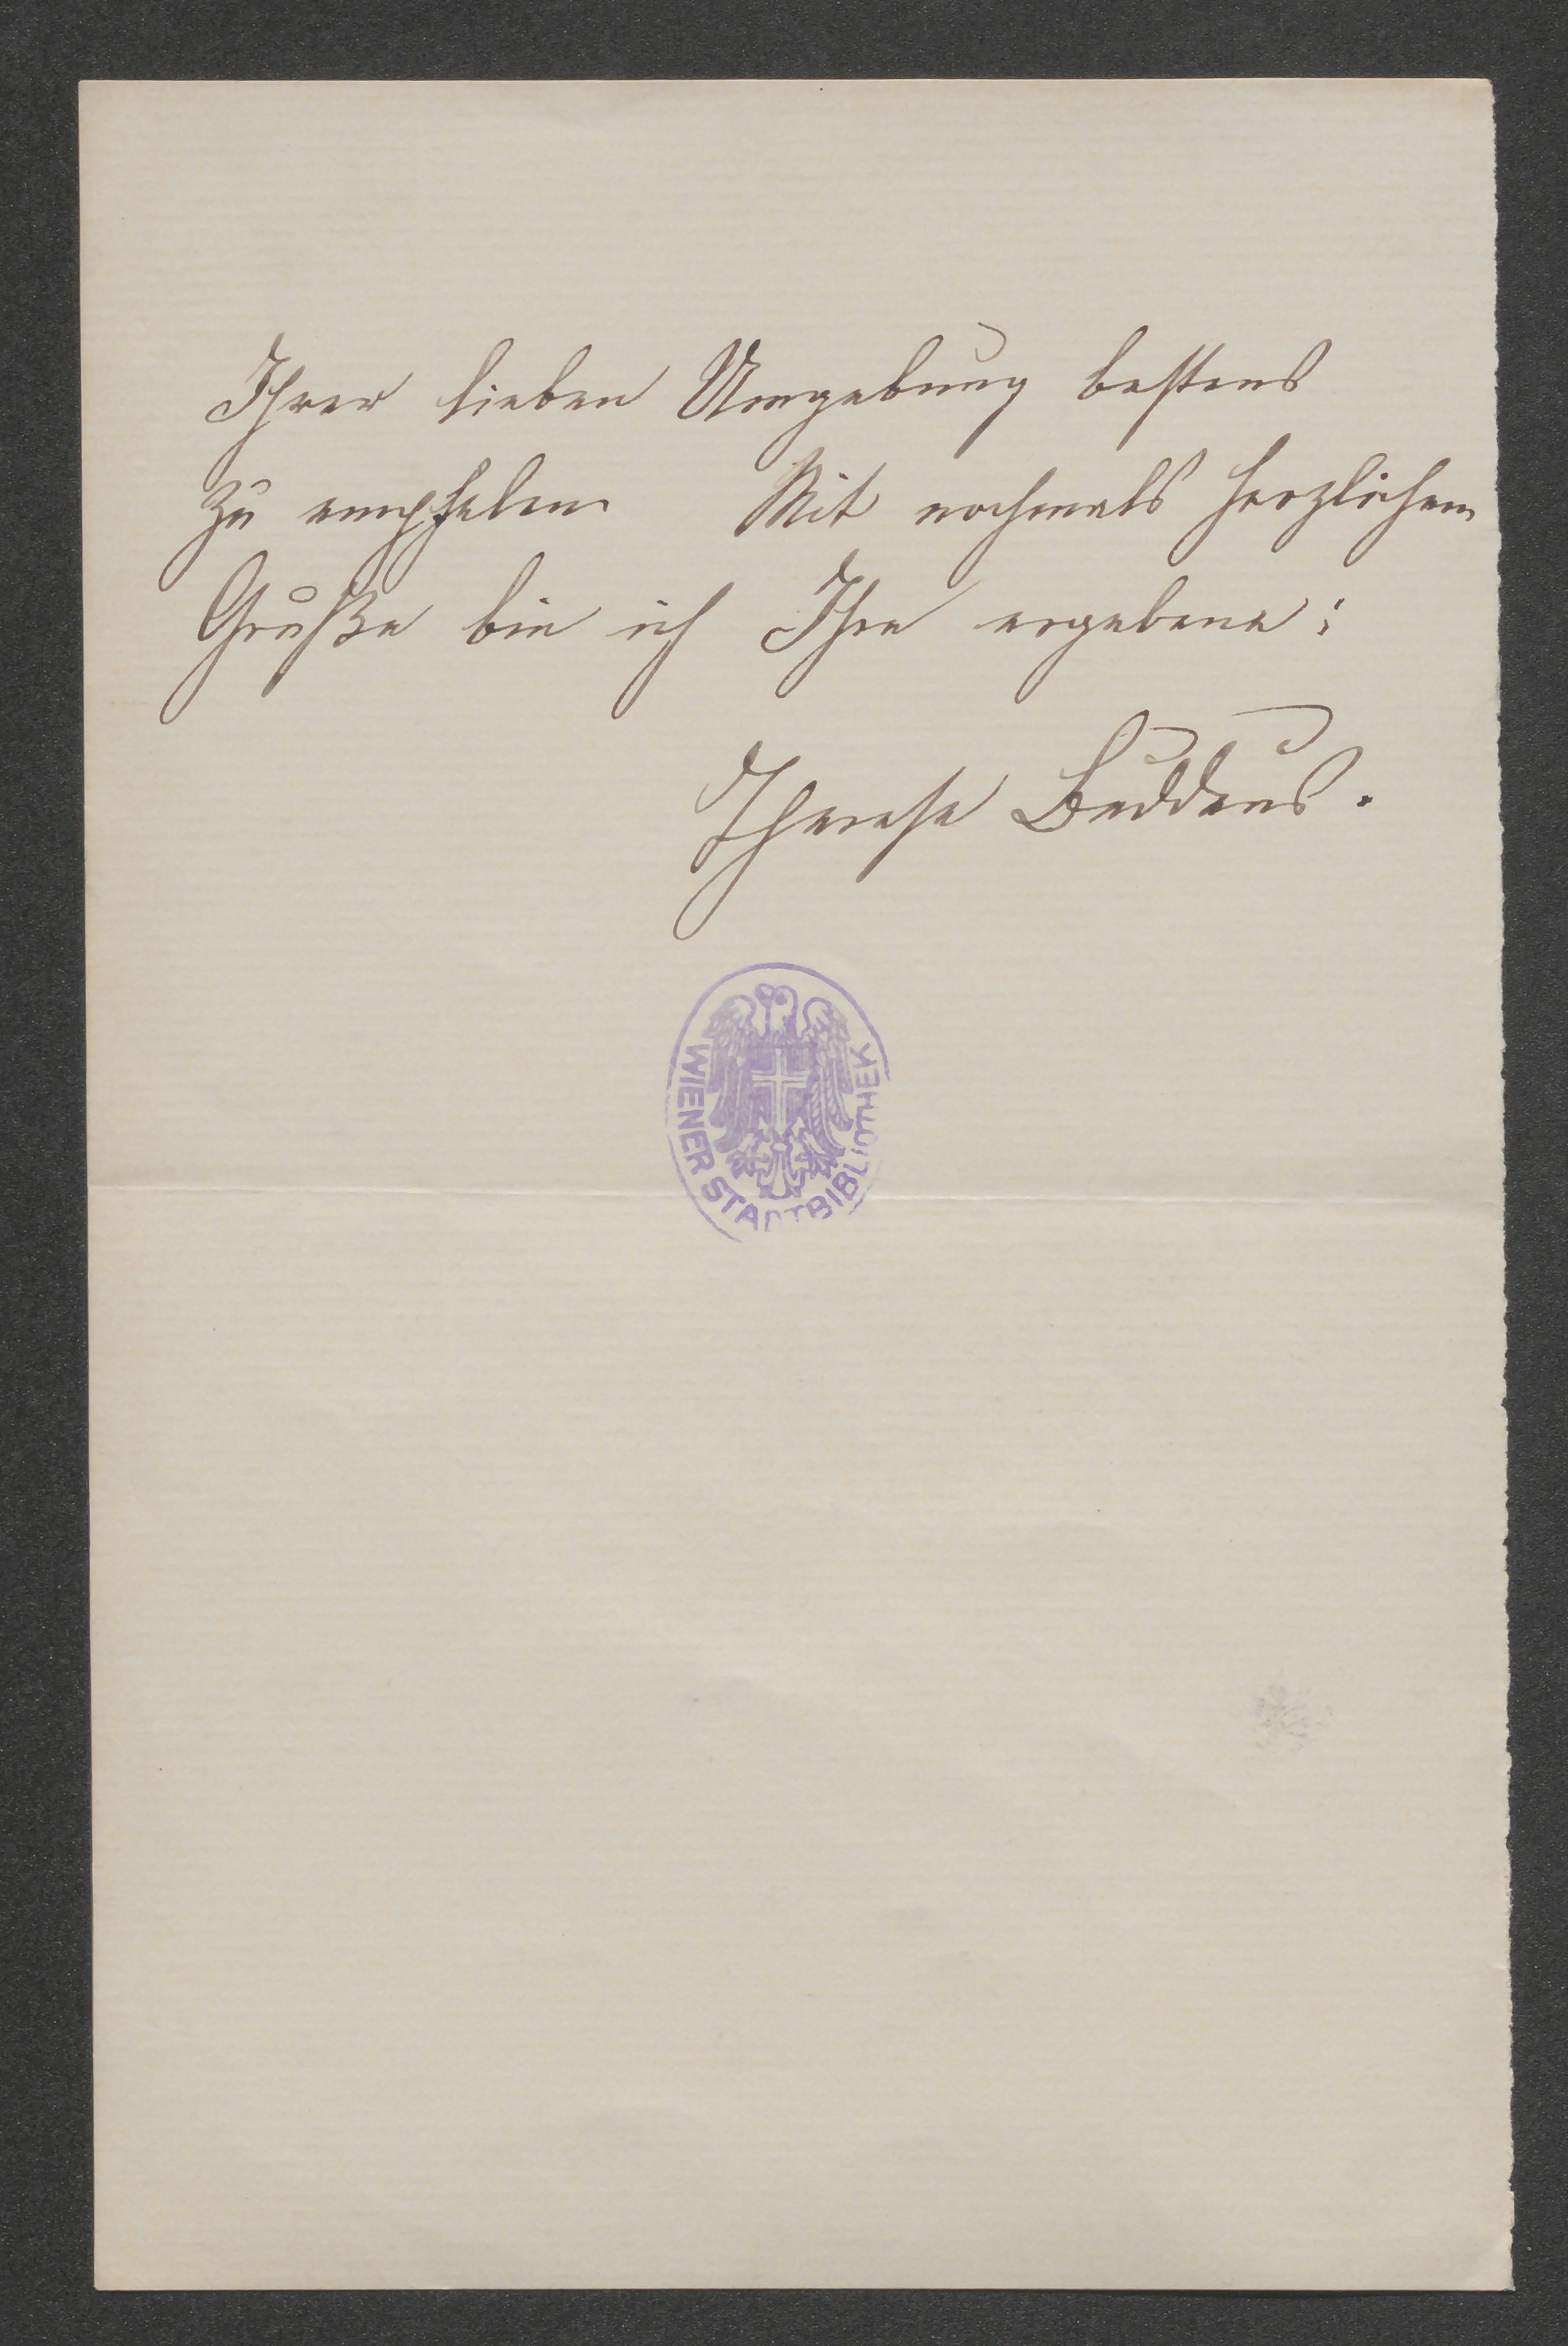 Ihrer lieben Umgebung bestens
zu empfelen Mit nochmals herzlichem
Gruße bin ich Ihre ergebene:
Therese Buddeus.
WIENER STADTBIBLIOTHEK